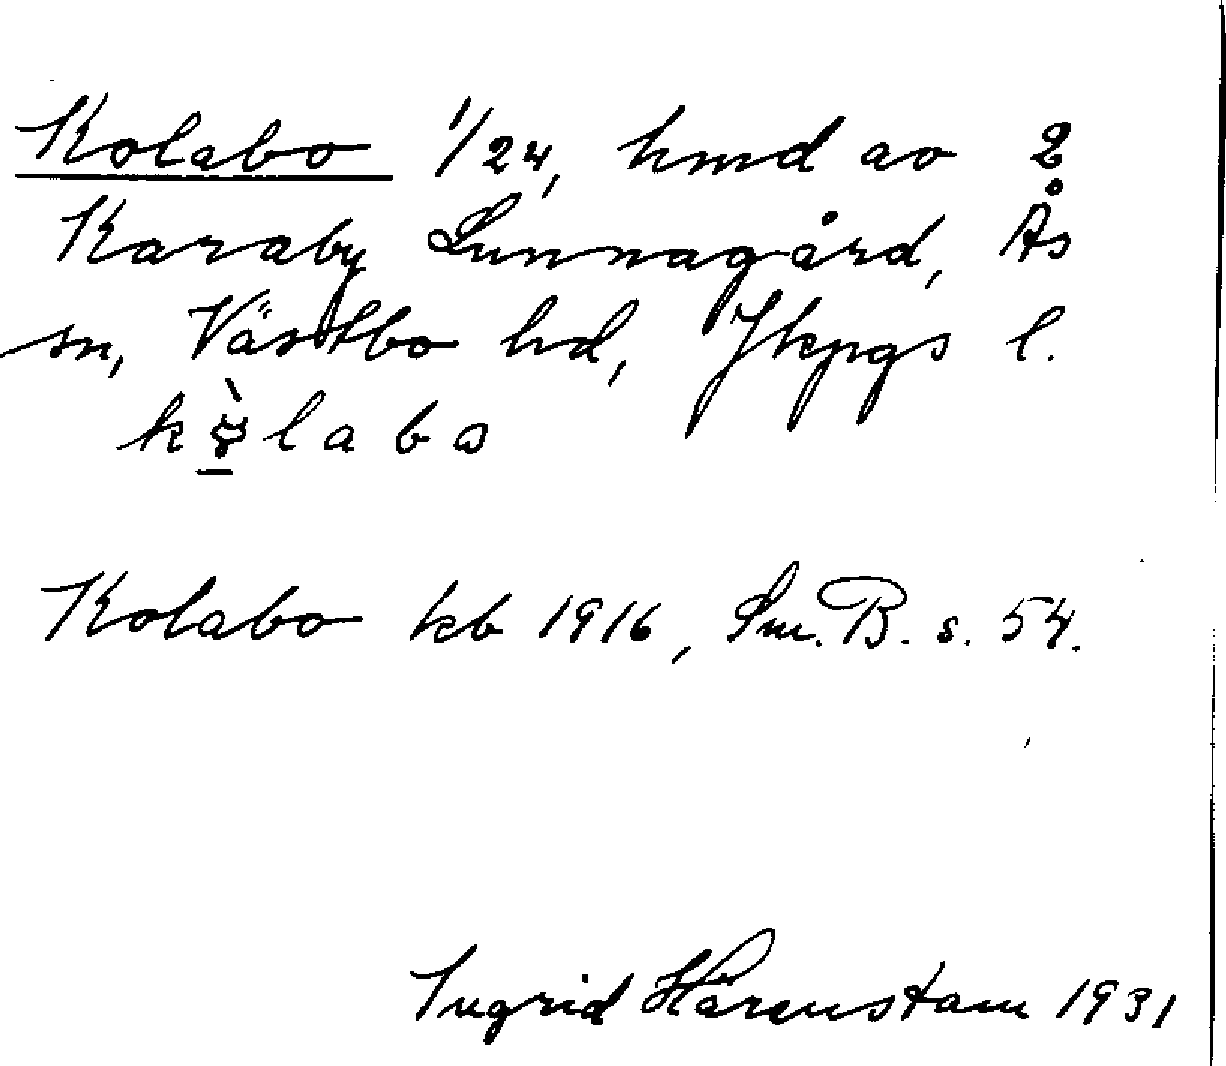 Kolabo 1/24, hmd av 2
Karaby Sunnagård, Ås
sn, Västbo hd, Jkpgs l.
Kolabo kb 1916, Sm. B. s. 54.
Ingrid Härenstam 1931